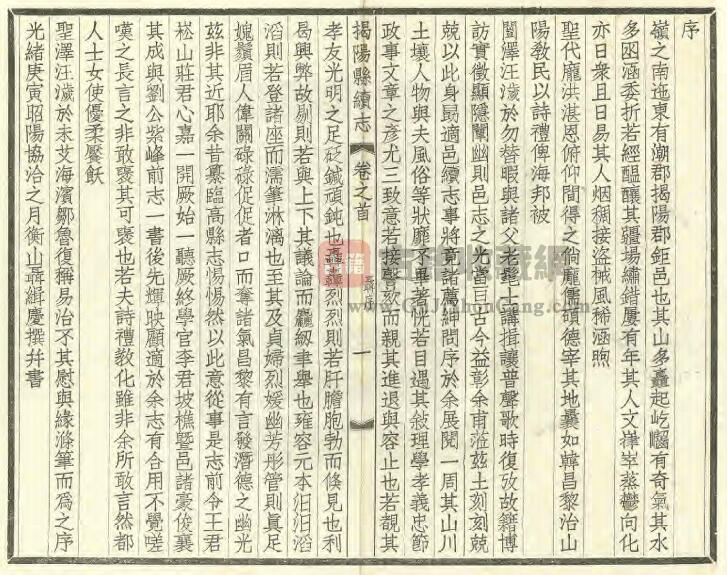 序
嶺之南迤東有潮郡揭陽郡鉅邑也其山多矗起屹𡾰有奇氣其水
多囦涵委折若經醞釀其疆場繡錯屢有年其人文嵂崒蒸鬱向化
亦日衆且日易其人烟稠接盜械風稀涵煦
聖代龐洪湛恩俯仰間得之倘龐儒碩德宰其地曩如韓昌黎治山
陽敎民以詩禮俾海邦被
闓澤汪濊於勿替暇與諸父老髦士講揖讓普聲歌時復攷故籍博
訪實徵顯隱闡幽則邑志之光當亘古今益彰余甫涖茲土刻刻兢
兢以此身勗適邑續志事將竟諸薦紳問序於余展閱一周其山川
土壤人物與夫風俗等狀靡不畢者恍若目遇其敍理學孝義忠節
政事文章之彥尤三致意若接謦欬而親其進退與容止也若覩其
揭陽縣續志
卷之首
聶序
一
孝友光明之足砭鍼頑鈍也轟轟烈烈則若肝膽胞勃而倏見也利
曷興弊故剔則若與上下其議論而麤紉聿舉也雍容元本汩汩滔
滔則若登諸座而濡筆淋漓也至其及貞婦烈媛幽芳彤管則眞足
媿鬚眉人偉闗碌碌促促者口而奪諸氣昌黎有言發潛德之幽光
茲非其近耶余昔纂臨高縣志惕惕然以此意從事是志前令王君
崧山莊君心嘉一開厥始一聽厥終學官李君坡樵暨邑諸豪俊襄
其成與劉公紫峰前志一書後先輝映顧適於余志有合用不覺嗟
嘆之長言之非敢襃其可襃也若夫詩禮敎化雖非余所敢言然都
人士女使優柔饜飫
聖澤汪濊於未艾海濱鄒魯復稱易治不其慰與緣滌筆而爲之序
光緒庚寅昭陽協洽之月衡山聶緝慶撰幷書